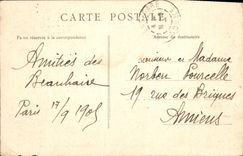 CARTE POSTALE
Partie réservée à la correspondance
Adresse du destinataire
Amitiés des
Beauhaire
Paris 17/9 1905
Monsieur et Madame
Norbert Pourcelle
19 rue des Briques
Amiens